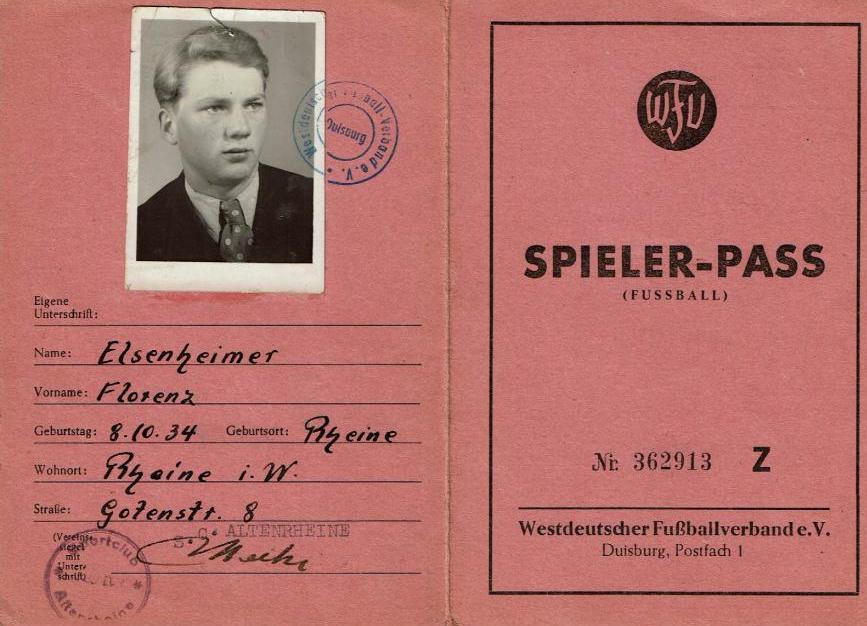 Westdeutscher Fußball-Verband e.V.
Duisburg
Eigene
Unterschrift:
Name: Elsenheimer
Vorname: Florenz
Geburtstag: 8.10.34 Geburtsort: Rheine
Wohnort: Rheine i. W.
Straße: Gotenstr. 8
S.C. ALTENRHEINE
(Vereins-
siegel
mit
Unter-
schrift)
Sportclub
Altenrheine
WFV
SPIELER-PASS
(FUSSBALL)
Nr. 362913 Z
Westdeutscher Fußballverband e.V.
Duisburg, Postfach 1